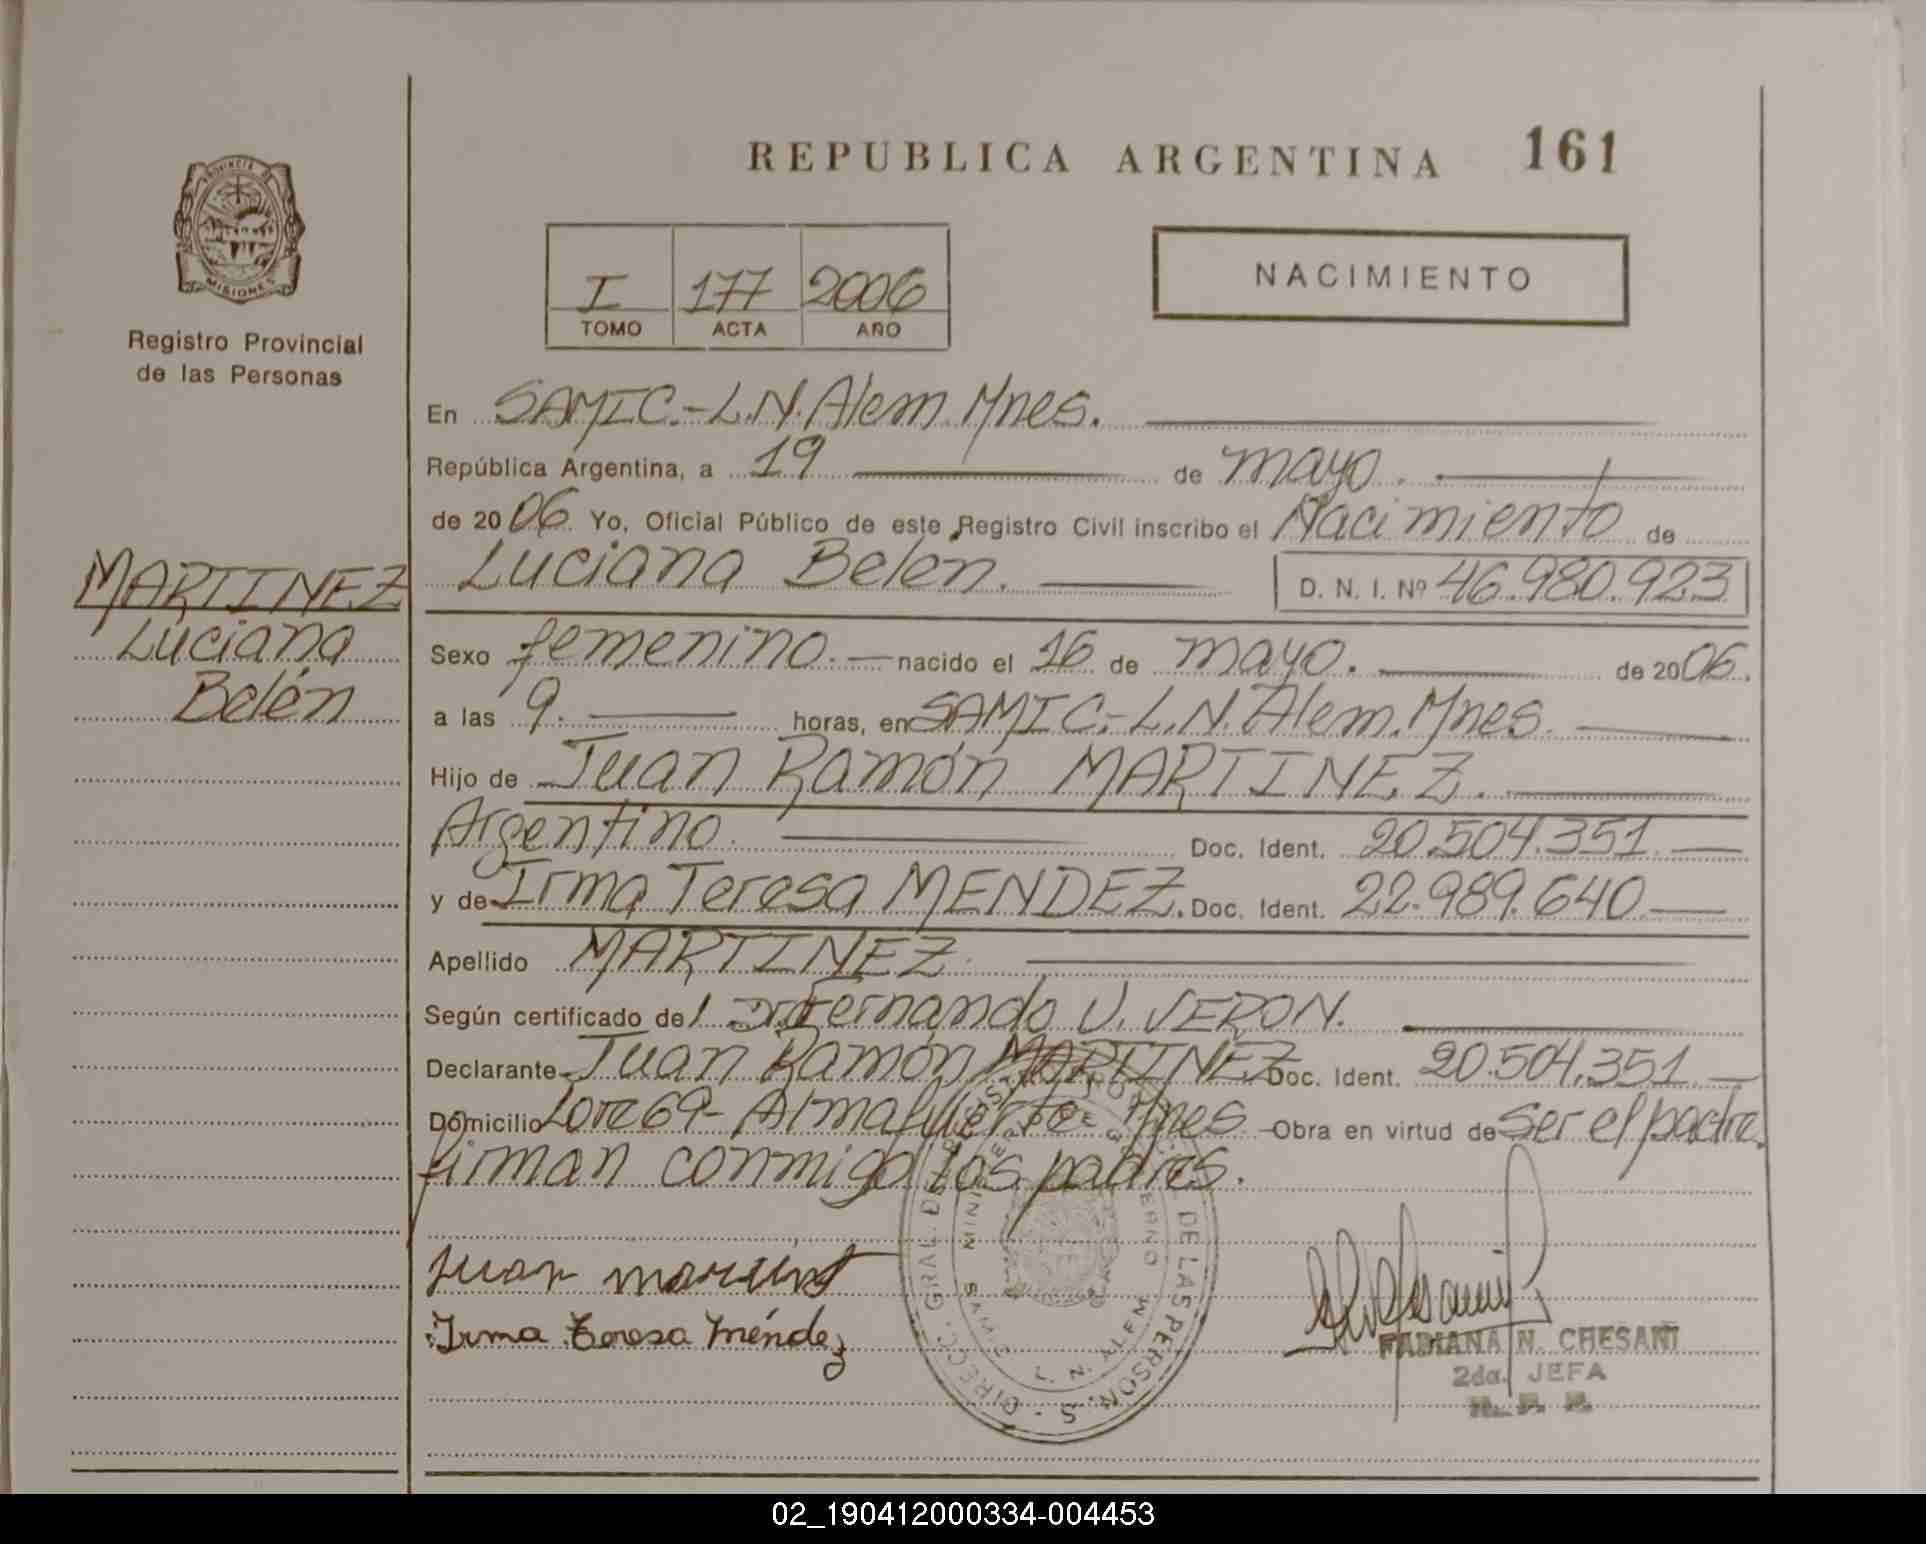 REPUBLICA ARGENTINA 161
PROVINCIA DE
MISIONES
Registro Provincial
de las Personas
I 177 2006
TOMO ACTA AÑO
NACIMIENTO
En SAMIC.-L.N. Alem. Mnes.
República Argentina, a 19 de mayo.
de 2006 Yo, Oficial Público de este Registro Civil inscribo el Nacimiento de
Luciana Belen. D. N. I. Nº 46.980.923
MARTINEZ
Luciana
Belén
Sexo femenino. nacido el 16 de mayo. de 2006.
a las 9. horas, en SAMIC.-L.N. Alem. Mnes.
Hijo de Juan Ramón MARTINEZ.
Argentino. Doc. Ident. 20.504.351
y de Irma Teresa MENDEZ. Doc. Ident. 22.989.640
Apellido MARTINEZ.
Según certificado del Dr. Fernando V. VERON.
Declarante Juan Ramón MARTINEZ Doc. Ident. 20.504.351
Domicilio Lote 69- Almafuerte Mnes Obra en virtud de Ser el padre.
firman conmigo los padres.
Irma Teresa Méndez
DIRECC. GRAL. DE DE LAS PERSON. S
L. N. ALEM
FABIANA N. CHESANI
2da. JEFA
02_190412000334-004453